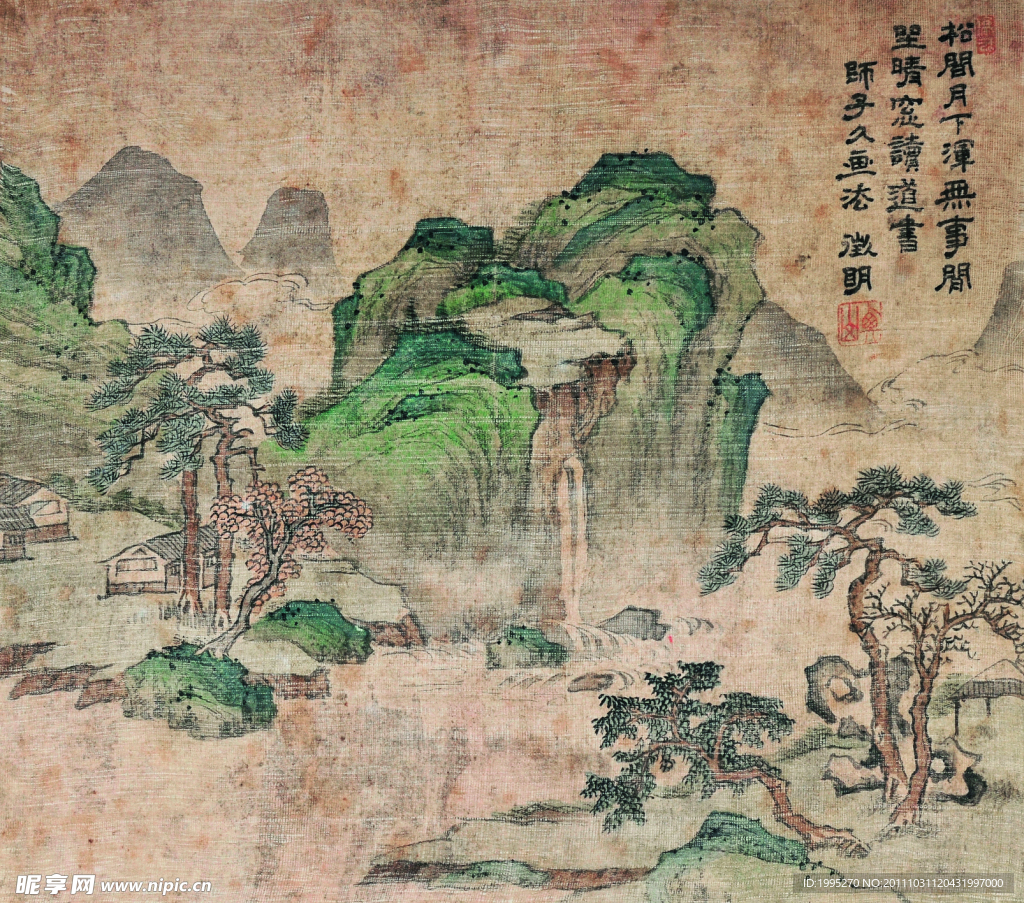 松間月下渾無事閒
坐晴窓讀道書
師子久畫法 徵明
昵享网 www.nipic.cn
ID:1995270 NO:20111031120431997000